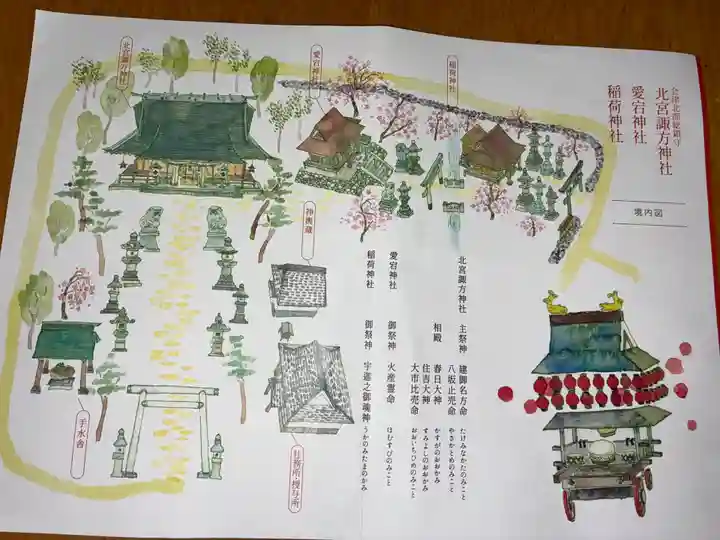 会津北部総鎮守
北宮諏方神社
愛宕神社
稲荷神社
境内図
稲荷神社
愛宕神社
北宮諏方神社
神輿蔵
手水舎
社務所・授与所
北宮諏方神社 主祭神 建御名方命 たけみなかたのみこと
八坂止売命 やさかとめのみこと
相殿 春日大神 かすがのおおかみ
住吉大神 すみよしのおおかみ
大市比売命 おおいちひめのみこと
愛宕神社 御祭神 火産霊命 ほむすびのみこと
稲荷神社 御祭神 宇迦之御魂神 うかのみたまのかみ